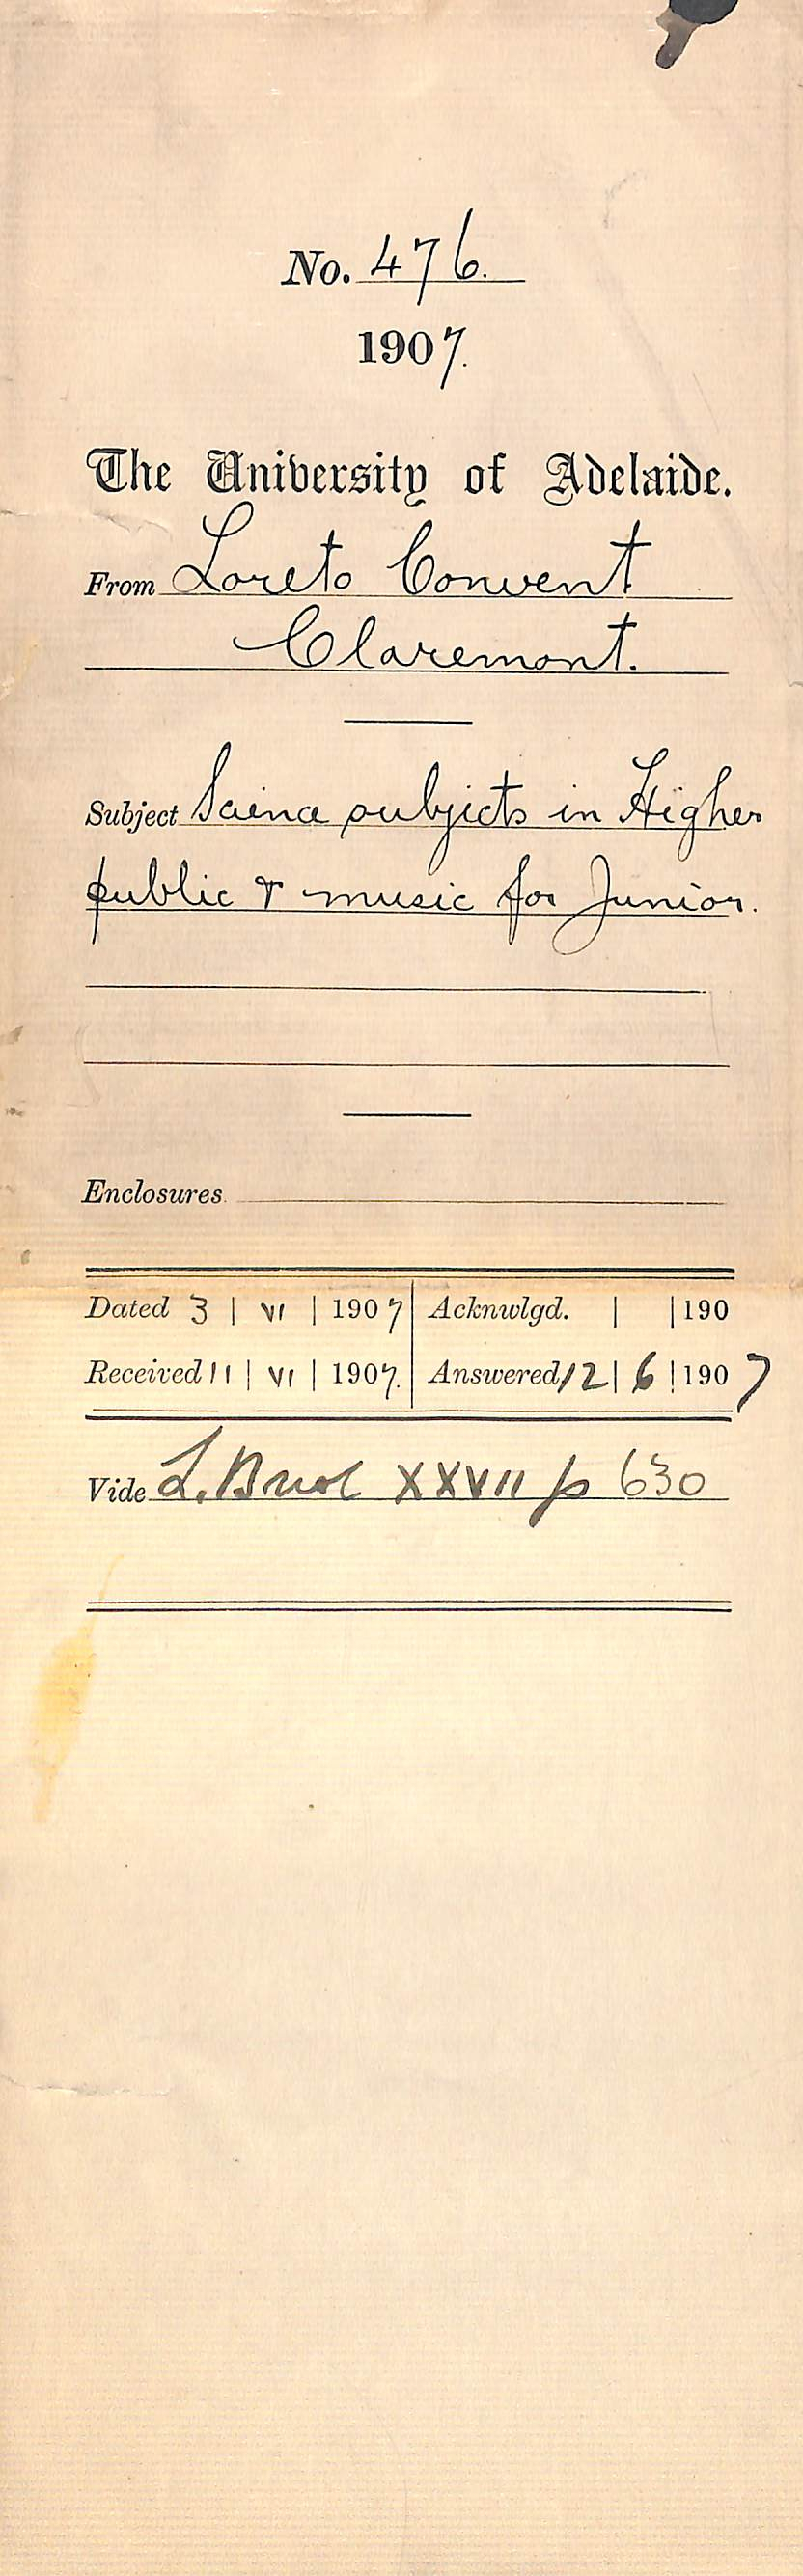 No. 476.
1907.
The University of Adelaide.
From Loreto Convent
Claremont.
Subject Science subjects in Higher
public & music for Junior.
Enclosures
Dated 3 | VI | 1907 Acknwlgd. | | 190
Received 11 | VI | 1907. Answered 12 | 6 | 1907
Vide L. XXVII p 630